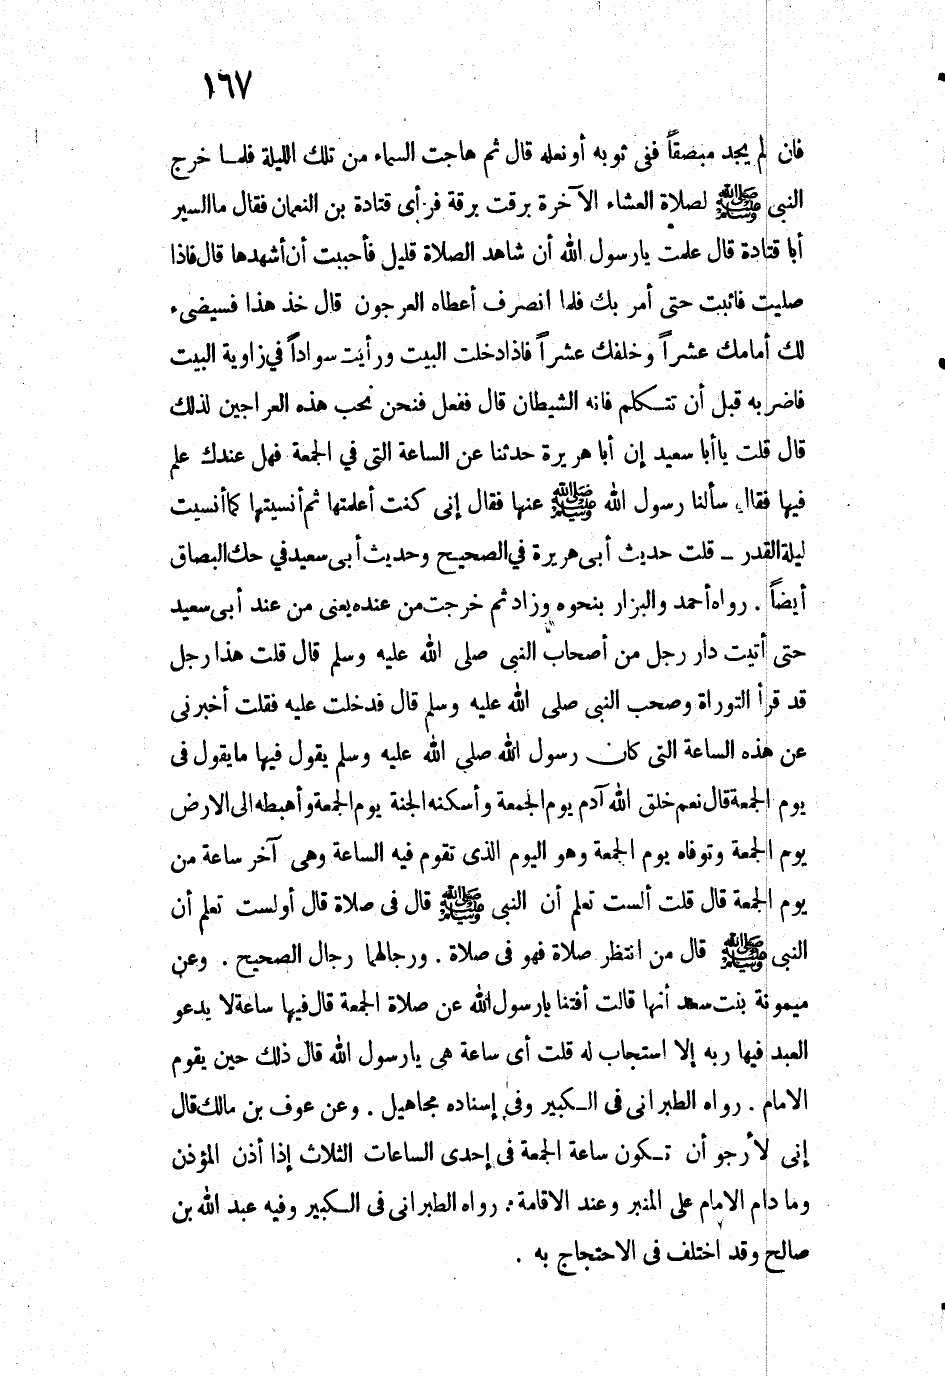 ١٦٧
فان لم يجد مبصقاً ففى ثوبه أو نعله قال ثم هاجت السماء من تلك الليلة فلما خرج
النبى ﷺ لصلاة العشاء الآخرة برقت برقة فرأى قتادة بن النعمان فقال ما السير
أبا قتادة قال علمت يارسول الله أن شاهد الصلاة قليل فأحببت أن أشهدها قال فاذا
صليت فاثبت حتى أمر بك فلما انصرف أعطاه العرجون قال خذ هذا فسيضىء
لك أمامك عشراً وخلفك عشراً فاذا دخلت البيت ورأيت سواداً فى زاوية البيت
فاضربه قبل أن تتكلم فانه الشيطان قال ففعل فنحن نحب هذه العراجين لذلك
قال قلت يا أبا سعيد إن أبا هريرة حدثنا عن الساعة التى في الجمعة فهل عندك علم
فيها فقال سألنا رسول الله ﷺ عنها فقال إنى كنت أعلمتها ثم أنسيتها كما أنسيت
ليلة القدر ـ قلت حديث أبى هريرة في الصحيح وحديث أبى سعيد في حك البصاق
أيضاً . رواه أحمد والبزار بنحوه وزاد ثم خرجت من عنده يعنى من عند أبى سعيد
حتى أتيت دار رجل من أصحاب النبى صلى الله عليه وسلم قال قلت هذا رجل
قد قرأ التوراة وصحب النبى صلى الله عليه وسلم قال فدخلت عليه فقلت أخبرنى
عن هذه الساعة التى كان رسول الله صلى الله عليه وسلم يقول فيها ما يقول فى
يوم الجمعة قال نعم خلق الله آدم يوم الجمعة وأسكنه الجنة يوم الجمعة وأهبطه الى الارض
يوم الجمعة وتوفاه يوم الجمعة وهو اليوم الذى تقوم فيه الساعة وهى آخر ساعة من
يوم الجمعة قال قلت ألست تعلم أن النبى ﷺ قال فى صلاة قال أو لست تعلم أن
النبى ﷺ قال من انتظر صلاة فهو فى صلاة . ورجالهما رجال الصحيح . وعن
ميمونة بنت سعد أنها قالت أفتنا يارسول الله عن صلاة الجمعة قال فيها ساعة لا يدعو
العبد فيها ربه إلا استجاب له قلت أى ساعة هى يارسول الله قال ذلك حين يقوم
الامام . رواه الطبرانى فى الكبير وفى إسناده مجاهيل . وعن عوف بن مالك قال
إنى لأرجو أن تكون ساعة الجمعة فى إحدى الساعات الثلاث إذا أذن المؤذن
وما دام الامام على المنبر وعند الاقامة . رواه الطبرانى فى الكبير وفيه عبد الله بن
صالح وقد اختلف فى الاحتجاج به .